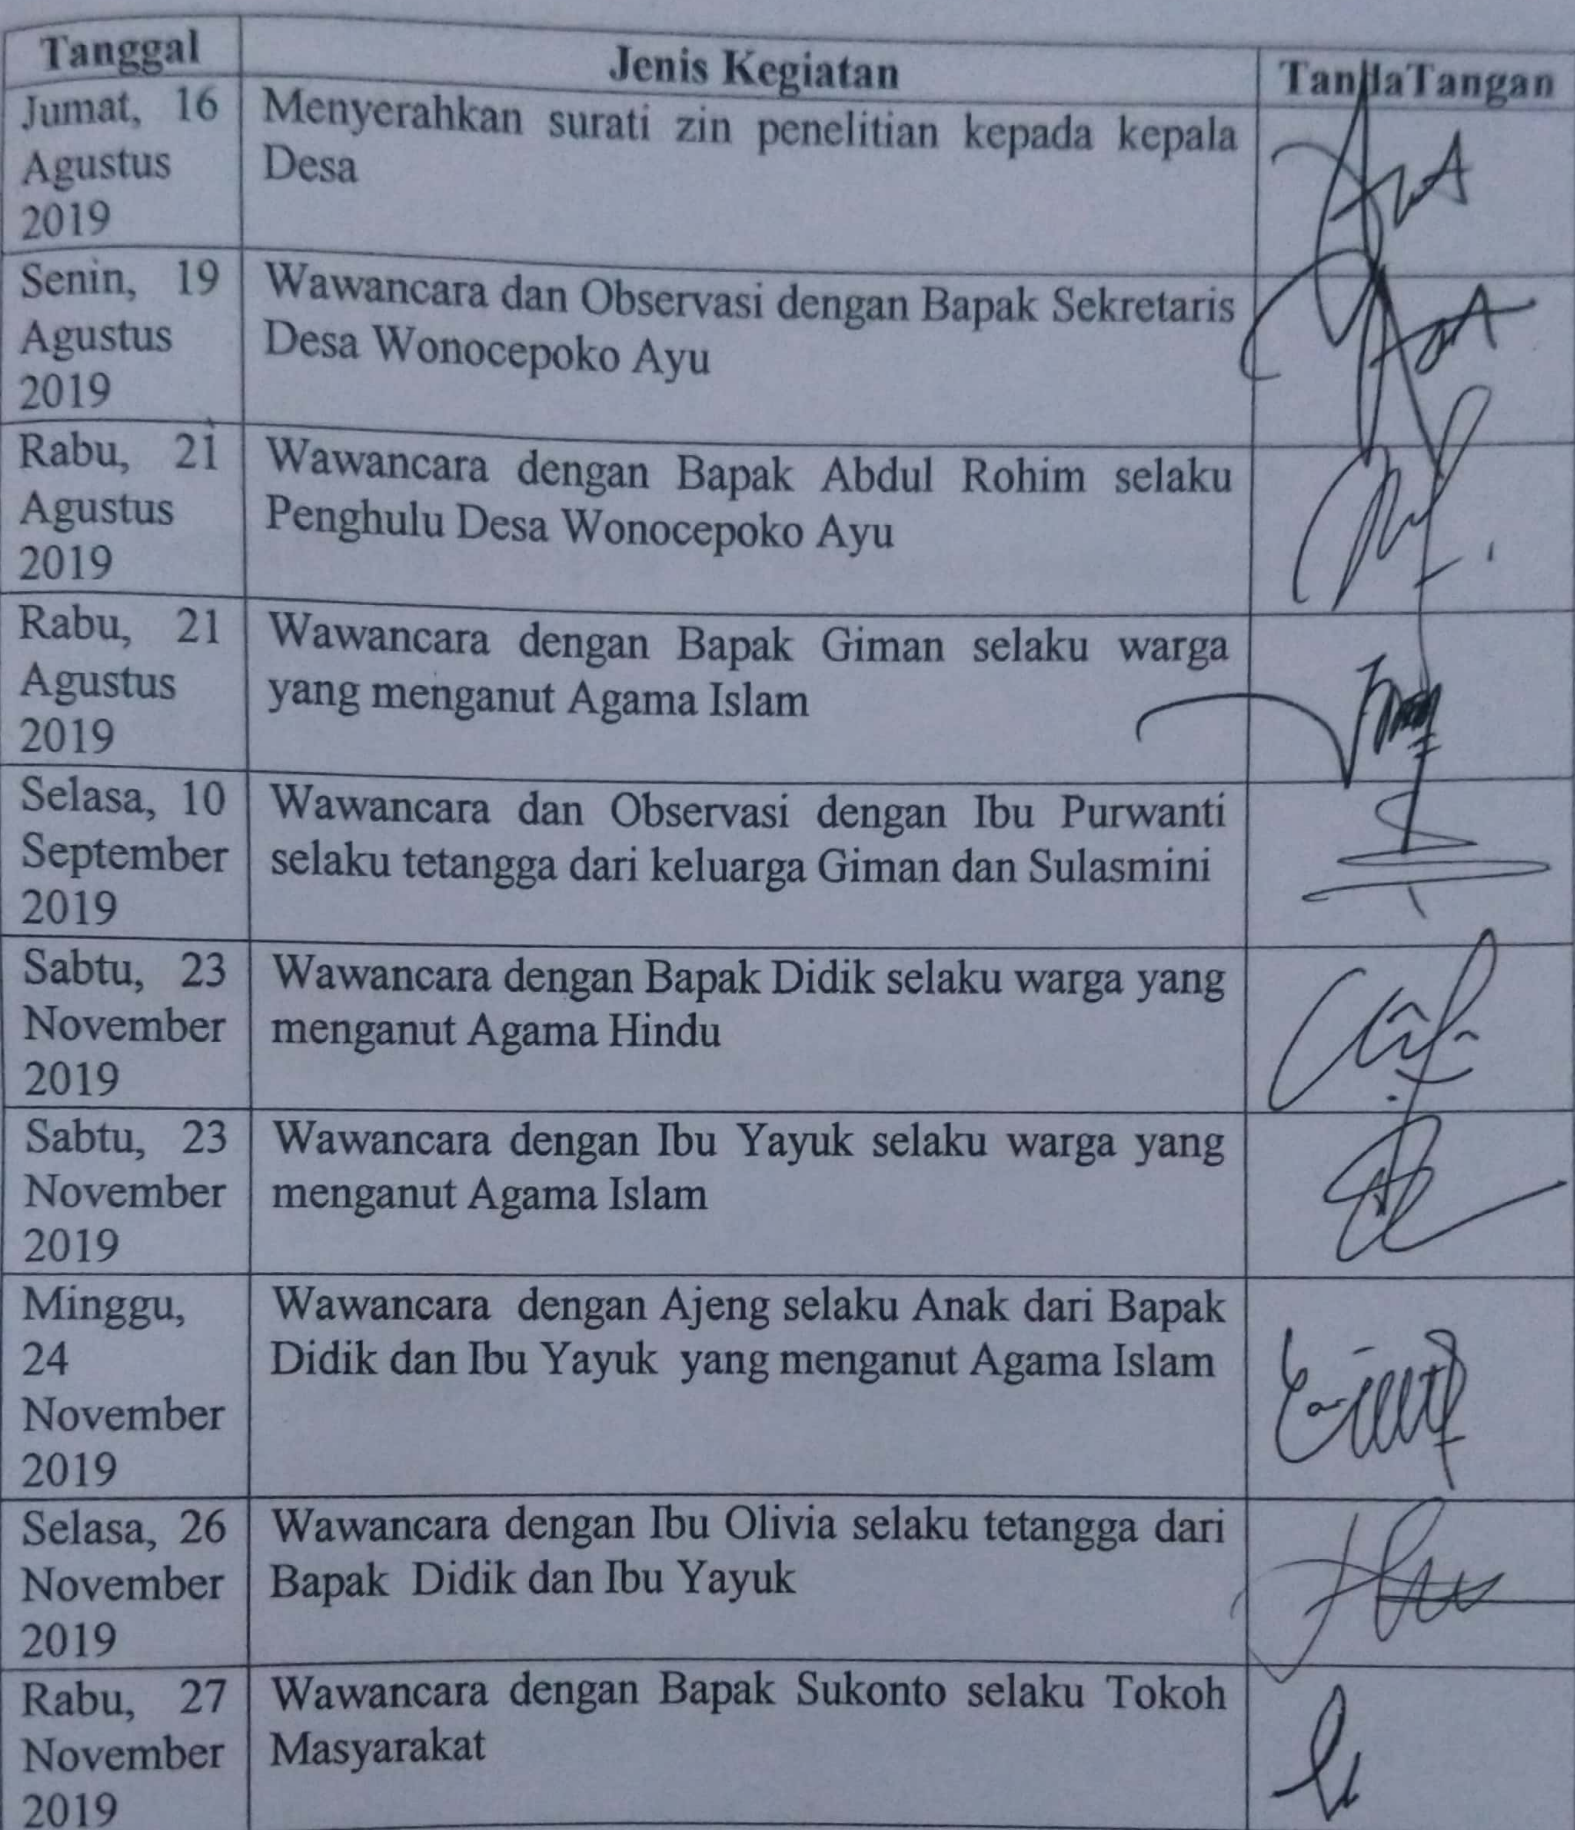 Tanggal
Jenis Kegiatan
TandaTangan
Jumat, 16
Agustus
2019
Menyerahkan surati zin penelitian kepada kepala
Desa
Senin, 19
Agustus
2019
Wawancara dan Observasi dengan Bapak Sekretaris
Desa Wonocepoko Ayu
Rabu, 21
Agustus
2019
Wawancara dengan Bapak Abdul Rohim selaku
Penghulu Desa Wonocepoko Ayu
Rabu, 21
Agustus
2019
Wawancara dengan Bapak Giman selaku warga
yang menganut Agama Islam
Selasa, 10
September
2019
Wawancara dan Observasi dengan Ibu Purwanti
selaku tetangga dari keluarga Giman dan Sulasmini
Sabtu, 23
November
2019
Wawancara dengan Bapak Didik selaku warga yang
menganut Agama Hindu
Sabtu, 23
November
2019
Wawancara dengan Ibu Yayuk selaku warga yang
menganut Agama Islam
Minggu,
24
November
2019
Wawancara dengan Ajeng selaku Anak dari Bapak
Didik dan Ibu Yayuk yang menganut Agama Islam
Selasa, 26
November
2019
Wawancara dengan Ibu Olivia selaku tetangga dari
Bapak Didik dan Ibu Yayuk
Rabu, 27
November
2019
Wawancara dengan Bapak Sukonto selaku Tokoh
Masyarakat